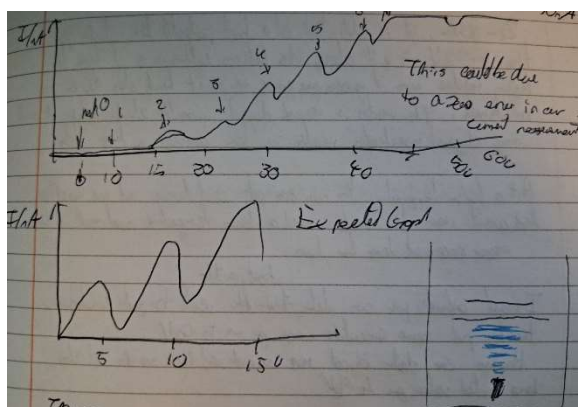 I/nA
0 1 2 3 4 5
This could be due
to a zero error in our
current measurement
10 15 20 30 40 50
I/nA
Expected Graph
5 10 15 U